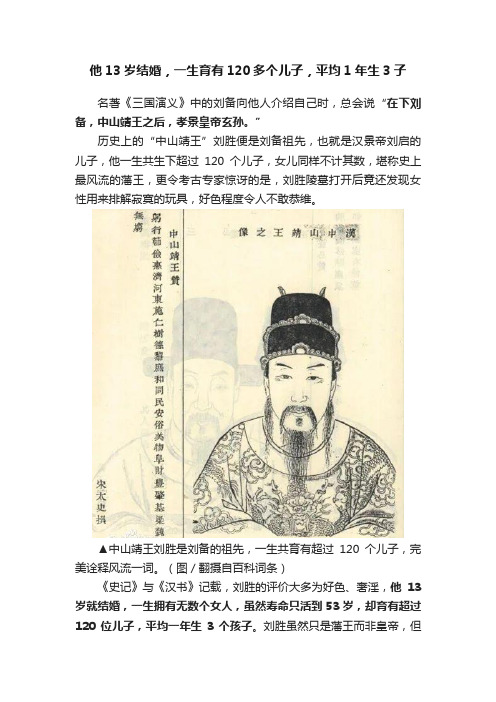 他13岁结婚，一生育有120多个儿子，平均1年生3子
名著《三国演义》中的刘备向他人介绍自己时，总会说“在下刘
备，中山靖王之后，孝景皇帝玄孙。”
历史上的“中山靖王”刘胜便是刘备祖先，也就是汉景帝刘启的
儿子，他一生共生下超过120个儿子，女儿同样不计其数，堪称史上
最风流的藩王，更令考古专家惊讶的是，刘胜陵墓打开后竟还发现女
性用来排解寂寞的玩具，好色程度令人不敢恭维。
漢中山靖王之像
中山靖王贊
躬行節儉惠濟河東施仁樹德黎庶和同民安俗美物阜財豐肇基梁魏
無窮
宋太史撰
▲中山靖王刘胜是刘备的祖先，一生共育有超过120个儿子，完
美诠释风流一词。（图／翻摄自百科词条）
《史记》与《汉书》记载，刘胜的评价大多为好色、奢淫，他13
岁就结婚，一生拥有无数个女人，虽然寿命只活到53岁，却育有超过
120位儿子，平均一年生3个孩子。刘胜虽然只是藩王而非皇帝，但